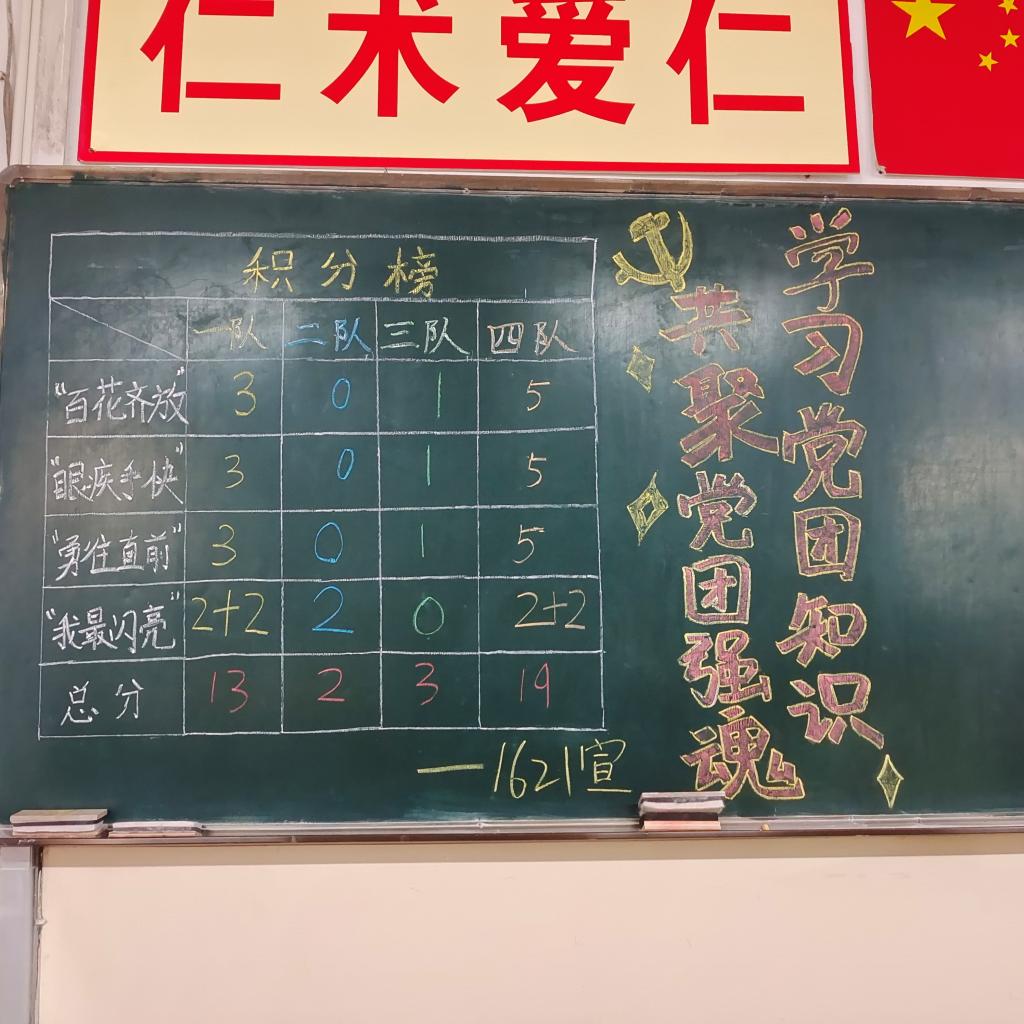 仁术爱仁
积分榜
一队 二队 三队 四队
"百花齐放" 3 0 1 5
"眼疾手快" 3 0 1 5
"勇往直前" 3 0 1 5
"我最闪亮" 2+2 2 0 2+2
总分 13 2 3 19
——1621宣
学习党团知识
共聚党团强魂